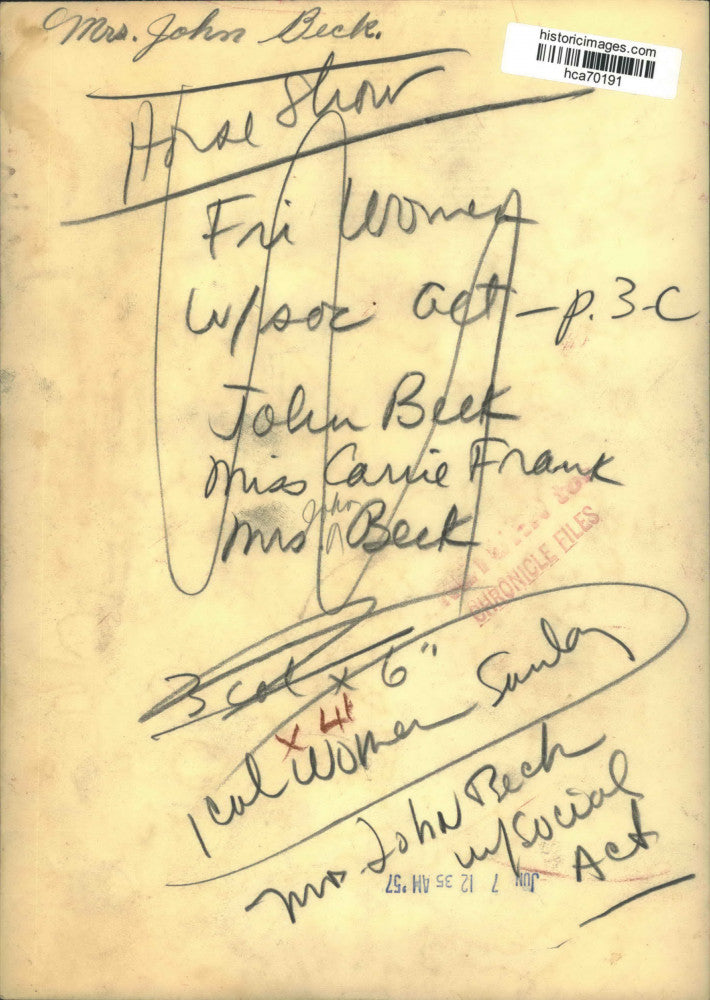 Mrs. John Beck.
historicimages.com
hca70191
Horse Show
Fri Women
w/soc act - p. 3-C
John Beck
Miss Carrie Frank
Mrs. John Beck
CHRONICLE FILES
3 col x 6"
x 4"
1 col Women Sunday
Mrs John Beck
w/social
Act
JUN 7 12 35 AM '57